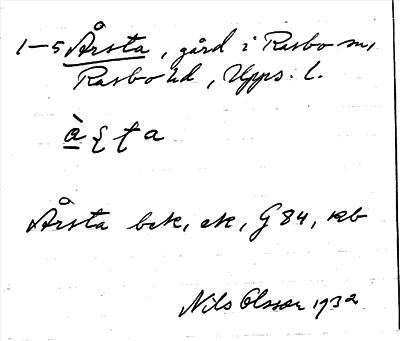 1-5 Årsta, gård i Rasbo sn,
Rasbo hd, Upps. l.
Årsta bek, ek, G 84, Kb
Nils Olsson 1932